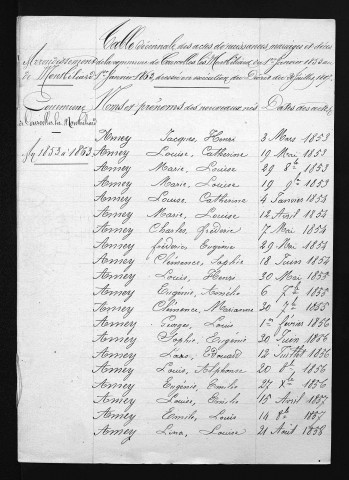 Table décennale des actes de naissances, mariages et décès
Arrondissement de la commune de Courcelles les Montbéliard du 1er janvier 1853 au
de Montbéliard 1er janvier 1863, dressée en exécution du Décret du 20 Juillet 1807
Commune Noms et prénoms des nouveaux nés Dates des actes
de Courcelles les Montbéliard
1853 à 1863
Amey Jacques, Henri 3 Mars 1853
Amey Louise, Catherine 19 Mai 1853
Amey Marie, Louise 29 8bre 1853
Amey Marie, Louise 19 9bre 1853
Amey Louise Catherine 4 Janvier 1854
Amey Marie, Louise 12 Avril 1854
Amey Charles, Frédéric 7 Mai 1854
Amey frédéric Eugène 29 Mai 1854
Amey Clémence, Sophie 18 Juin 1854
Amey Louis, Henri 30 Mai 1855
Amey Eugénie, 6 1855
Amey Clémence, Marianne 30 7bre 1855
Amey Georges, Louis 1er février 1856
Amey Sophie, Eugénie 30 Juin 1856
Amey Edouard 12 Juillet 1856
Amey Louis, Alphonse 20 8bre 1856
Amey Eugénie, Emilie 27 Xbre 1856
Amey Louise, Emilie 15 Avril 1857
Amey Emile, Louis 14 8bre 1857
Amey Lina, Louise 21 Avril 1858